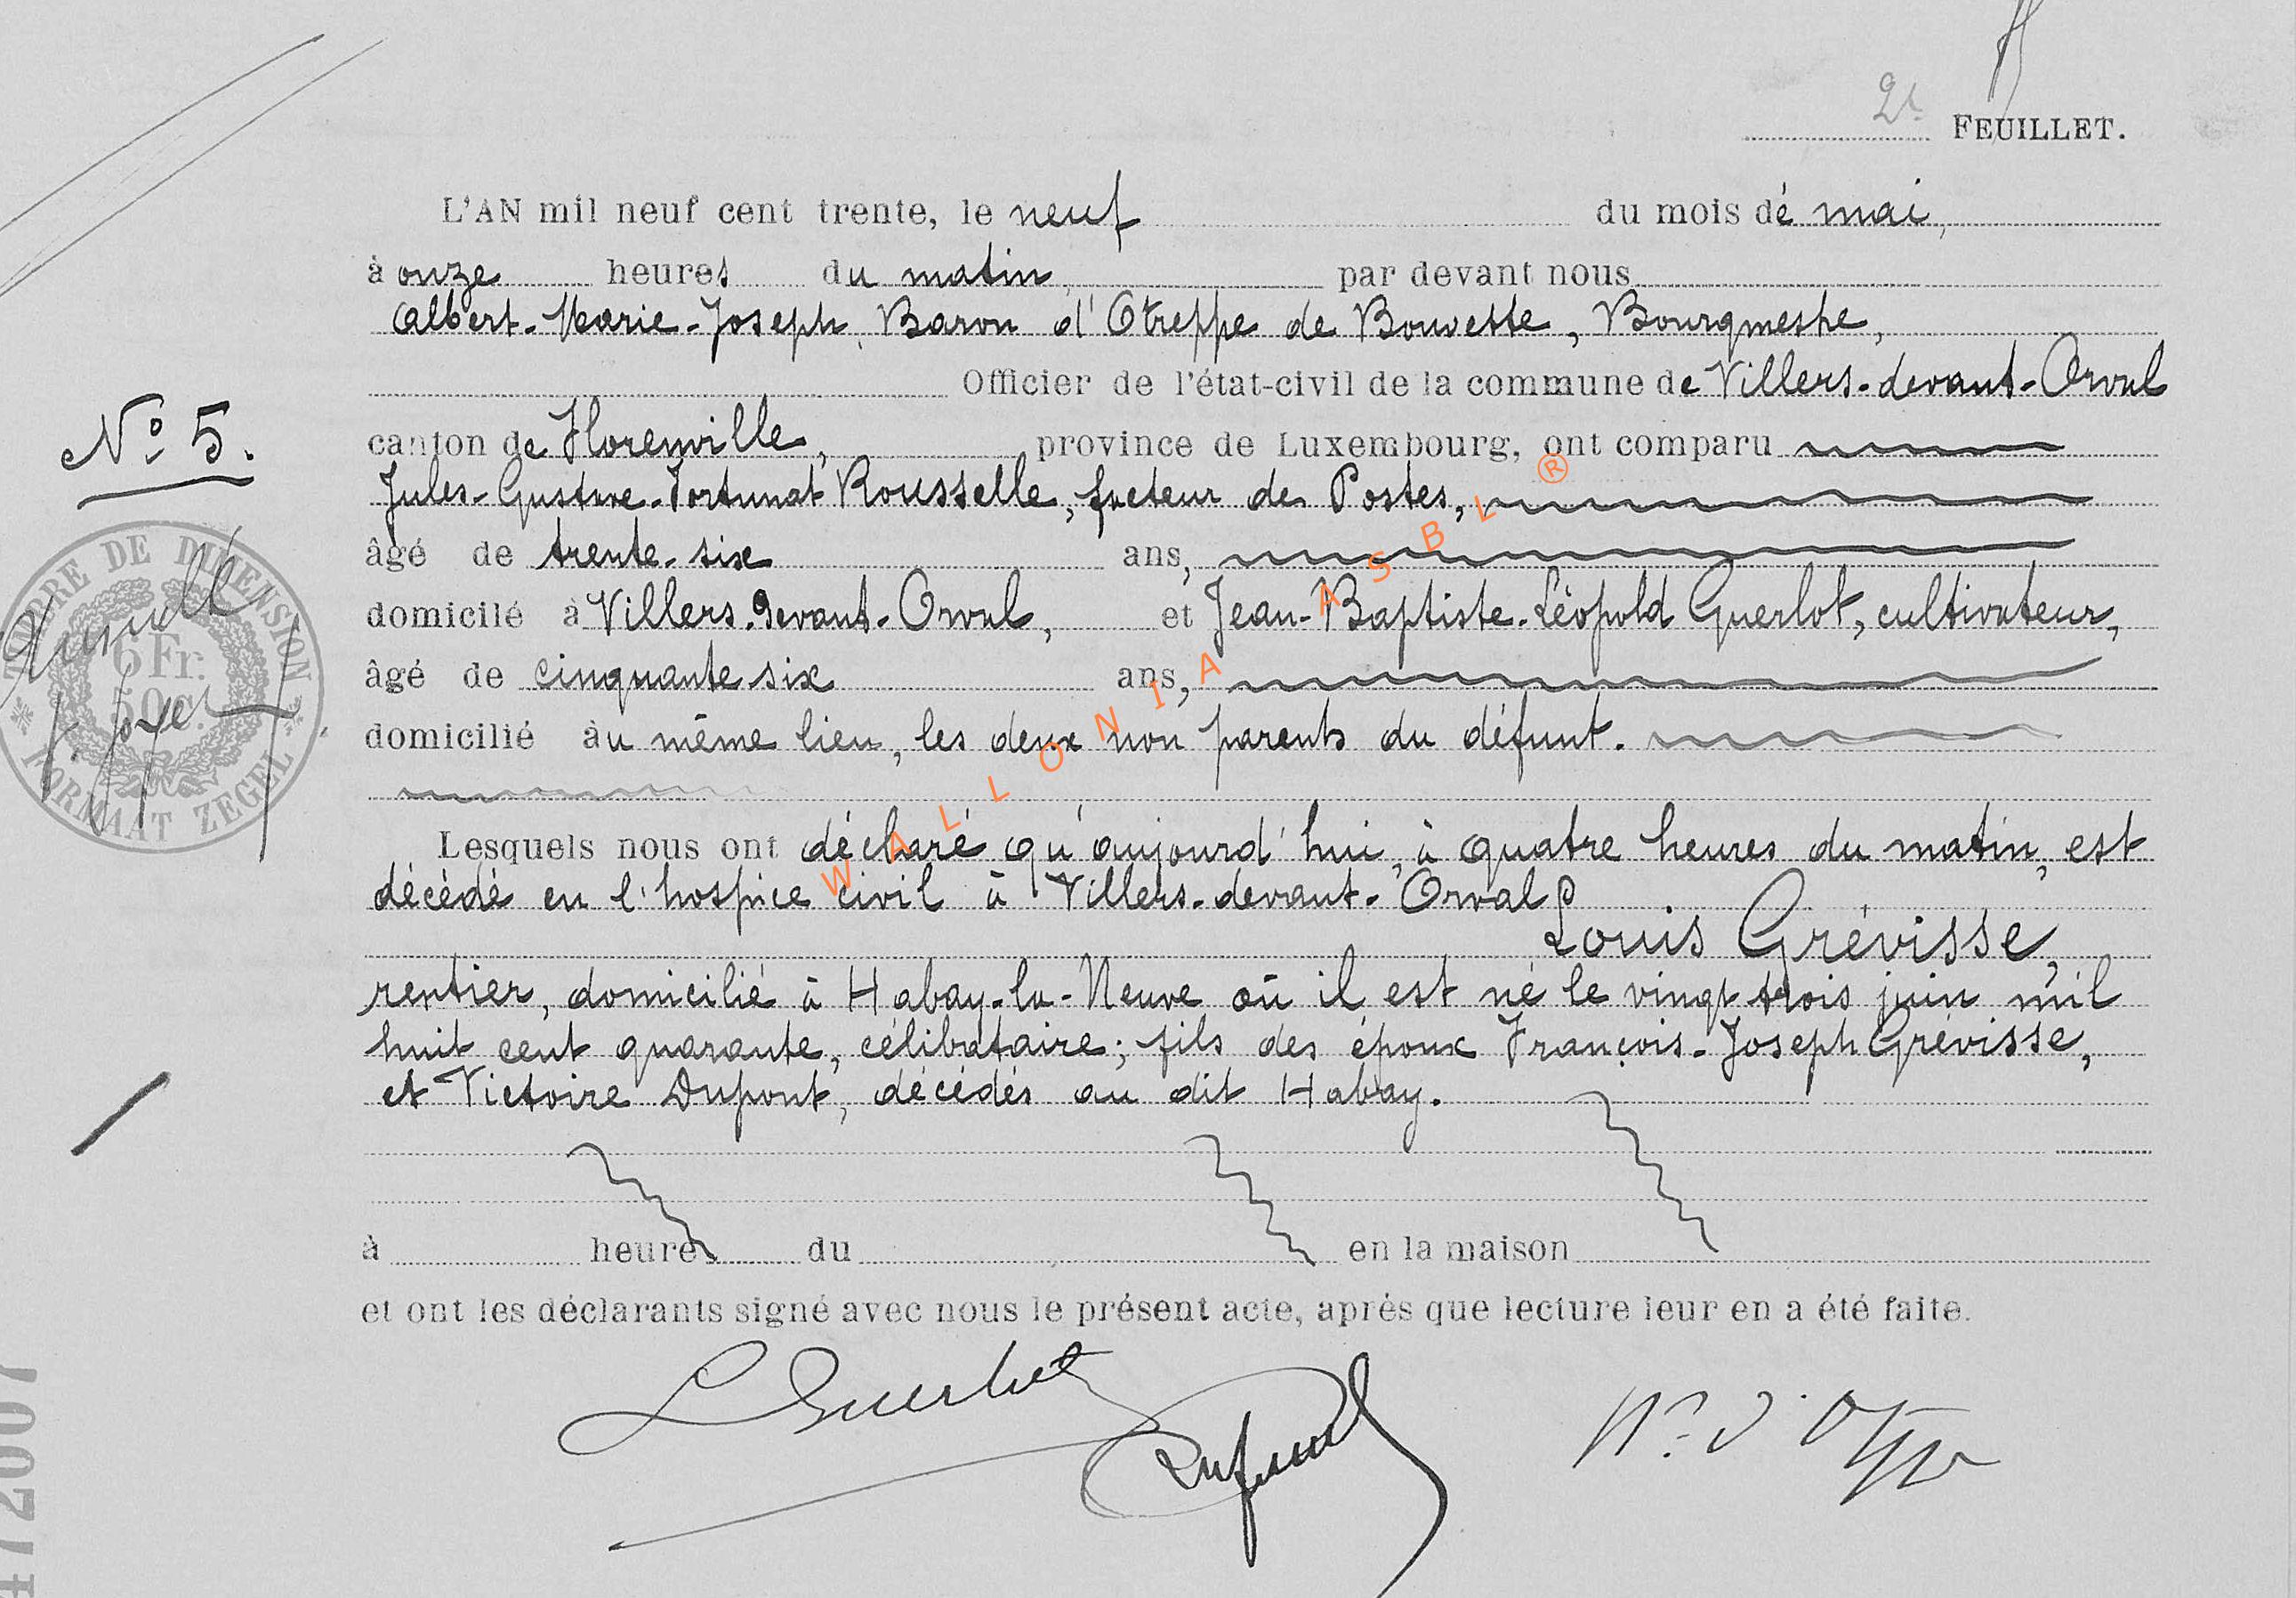 2e FEUILLET.
L'AN mil neuf cent trente, le neuf du mois de mai,
à onze heures du matin, par devant nous
Albert-Marie-Joseph, Baron d'Otreppe de Bouvette, Bourgmestre,
Officier de l'état-civil de la commune de Villers-devant-Orval
N° 5.
canton de Florenville, province de Luxembourg, ont comparu
Jules-Gustave-Fortunat Rousselle, facteur des Postes,
âgé de trente-six ans,
domicilé à Villers-devant-Orval, et Jean-Baptiste-Léopold Guerlot, cultivateur,
âgé de cinquante six ans,
domicilié au même lieu, les deux non parents du défunt.
TIMBRE DE DIMENSION
6 Fr.
50 c.
FORMAAT ZEGEL
Lesquels nous ont déclaré qu'aujourd'hui, à quatre heures du matin, est
décédé en l'hospice civil à Villers-devant-Orval
Louis Grévisse,
rentier, domicilié à Habay-la-Neuve où il est né le vingt trois juin mil
huit cent quarante, célibataire; fils des époux François-Joseph Grévisse,
et Victoire Dupont, décédés au dit Habay.
à heure du en la maison
et ont les déclarants signé avec nous le présent acte, après que lecture leur en a été faite.
L Guerlot
472007
WALLONIA ASBL ®